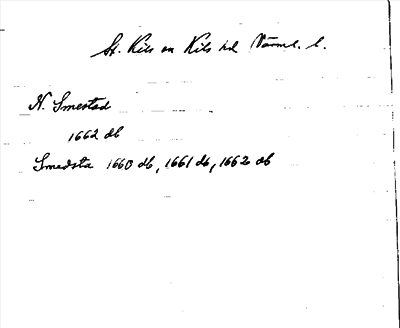 St. Kils sn Kils hd Värml. l.
N. Smestad
1662 db
Smedsta 1660 db, 1661 db, 1662 db